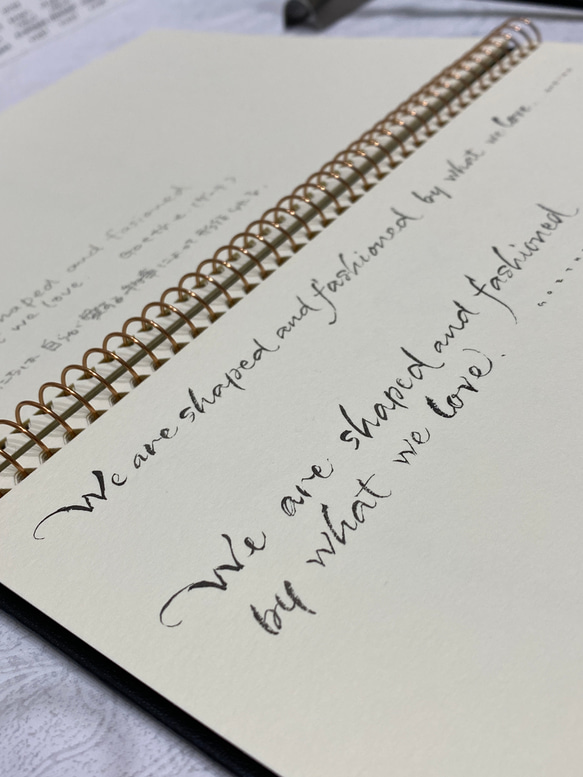 shaped and fasioned
we love Goethe (ゲーテ)
We are shaped and fashioned by what we love.
We are shaped and fashioned
by what we love.